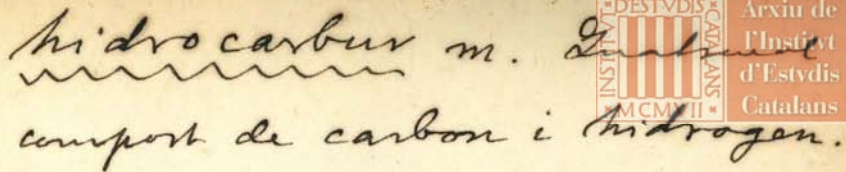 hidrocarbur m. Qualsevol
compost de carbon i hidrogen.
INSTITVT D'ESTVDIS CATALANS
MCMVII
Arxiu de
l'Institvt
d'Estvdis
Catalans